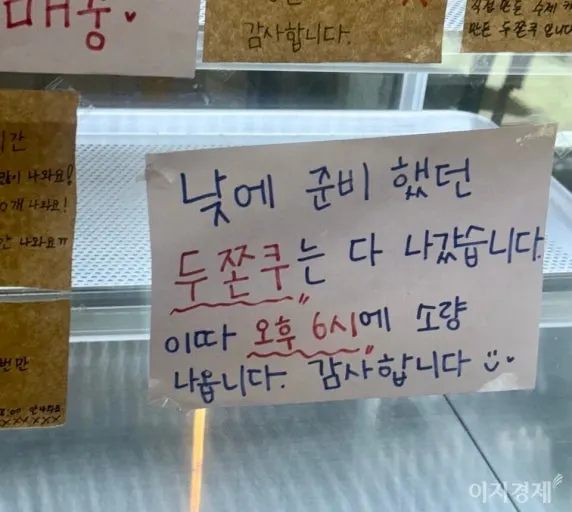 매중
감사합니다.
직접 만든 수제
만든 두쫀쿠 입니다
나와요!
개 나와요!
나와요ㅠ
낮에 준비 했던
두쫀쿠는 다 나갔습니다.
이따 오후 6시에 소량
나옵니다. 감사합니다
이지경제